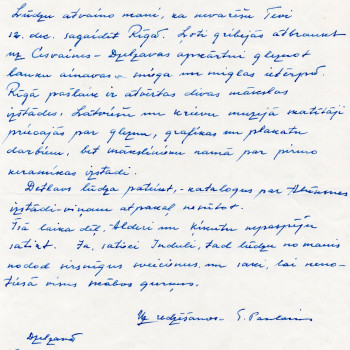 Lūdzu atvaino mani, ka nevarēšu Tevi
12. dec. sagaidīt Rīgā. Ļoti gribējās atbraukt
uz Cesvaines - Dzelzavas apkārtni gleznot
lauku ainavas sniega un miglas ietērpā.
Rīgā pašlaik ir atvērtas divas mākslas
izstādes. Latviešu un krievu muzejā skatītāji
priecājas par gleznu, grafikas un plakātu
darbiem, bet mākslinieku namā par pirmo
keramikas izstādi.
Detlavs lūdza pateikt, - katalogus par
izstādi - viņam atpakaļ nesūtot.
Tā laika dēļ, Aldori un nepaspēju
satikt. Ja, satiec Induli, tad lūdzu no manis
nodod sirsnīgus sveicienus un saki, lai neno-
tiesā viņus skābos gurķus.
Uz redzēšanos -
Dzelzavā